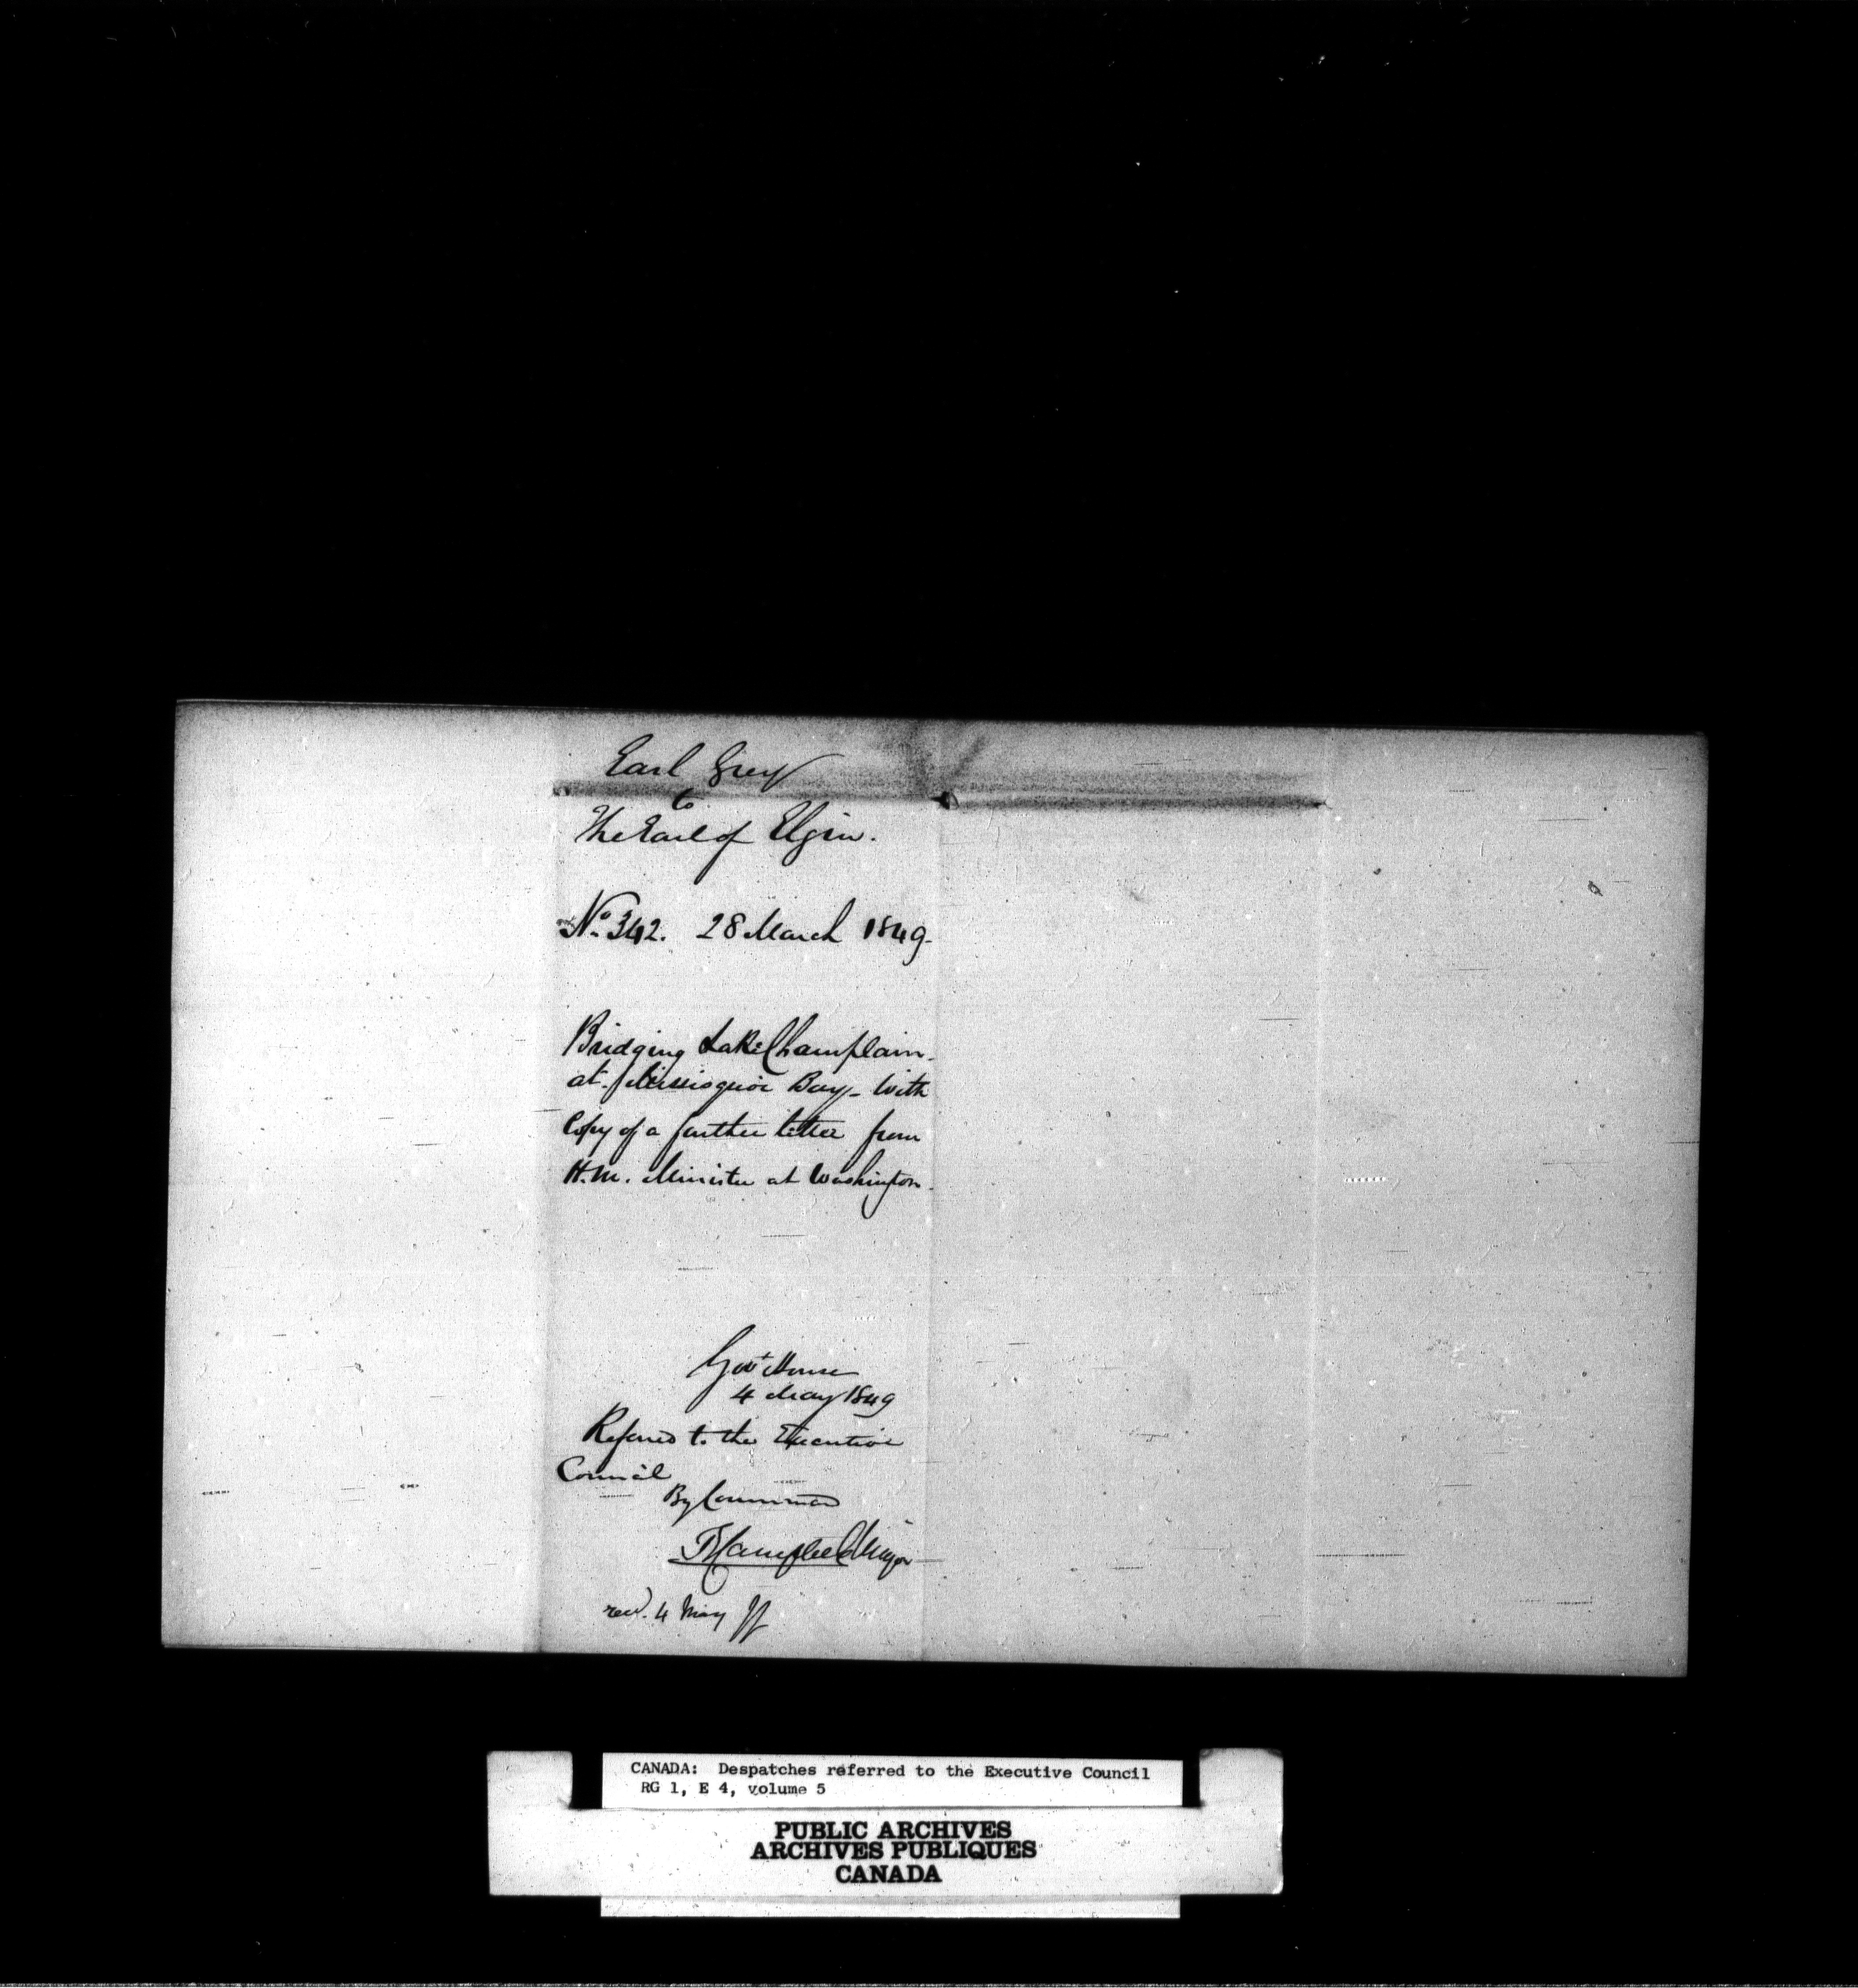 Earl Grey
to
The Earl of Elgin.
No. 342. 28 March 1849.
Bridging Lake Champlain
at Missisquoi Bay - With
Copy of a further letter from
H.M. Minister at Washington.
Govt House
4 May 1849
Referred to the Executive
Council
By Command
T Campbell Major
recd. 4 May
CANADA: Despatches referred to the Executive Council
RG 1, E 4, volume 5
PUBLIC ARCHIVES
ARCHIVES PUBLIQUES
CANADA